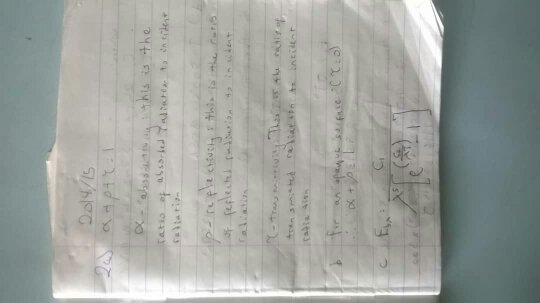 2014/15
2a) α + ρ + τ = 1
α - absorptivity : this is the
ratio of absorbed radiation to incident
radiation
ρ - reflectivity : this is the ratio
of reflected radiation to incident
radiation
τ - transmissivity This is the ratio of
transmitted radiation to incident
radiation
b for an opaque surface (τ = 0)
∴ α + ρ = 1
c E_bλ = C₁
λ⁵ [e^(C₂/λT) - 1]